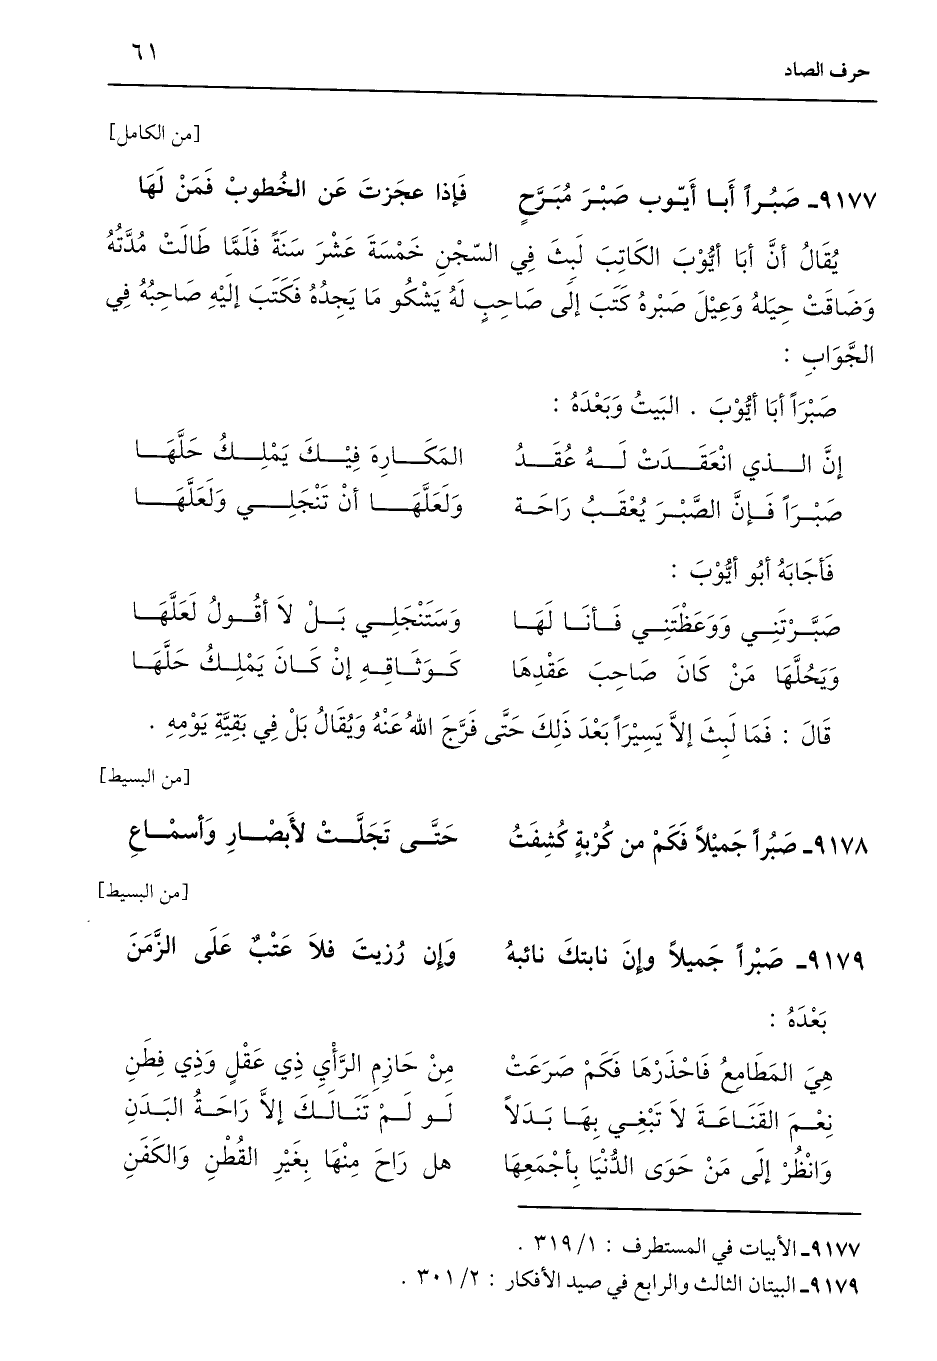 حرف الصاد ٦١
[من الكامل]
٩١٧٧ـ صَبُراً أَبا أَيّوب صَبْرَ مُبَرَّحٍ فَإذا عجَزتَ عَن الخُطوبْ فَمَنْ لَهَا
يُقَالُ أنَّ أبَا أيُّوْبَ الكَاتِبَ لَبِثَ فِي السّجْنِ خَمْسَةَ عَشْرَ سَنَةً فَلَمَّا طَالَتْ مُدَّتُهُ
وَضَاقَتْ حِيَلهُ وَعِيْلَ صَبْرهُ كَتَبَ إلَى صَاحِبٍ لَهُ يَشْكُو مَا يَجِدُهُ فَكَتَبَ إلَيْهِ صَاحِبُهُ فِي
الجَّوَابِ :
صَبْرَاً أبَا أيُّوْبَ . البَيتُ وَبَعْدَهُ :
إنَّ الـذي انْعَقَـدَتْ لَـهُ عُقَـدُ المَكَـارِهَ فِيْـكَ يَمْلِـكُ حَلَّهَـا
صَبْـرَاً فَـإنَّ الصَّبْـرَ يُعْقـبُ رَاحَـة وَلَعَلَّهَـا أنْ تَنْجَلِـي وَلَعَلَّهَـا
فَأجَابَهُ أبُو أيُّوْبَ :
صَبَّـرْتَنِـي وَوَعَظْتَنِـي فَـأنَـا لَهَـا وَسَتَنْجَلِـي بَـلْ لاَ أقُـولُ لَعَلَّهَـا
وَيَحُلَّهَا مَنْ كَانَ صَاحِبَ عَقْدِهَا كَـوَثَـاقِـهِ إنْ كَـانَ يَمْلِـكُ حَلَّهَـا
قَالَ : فَمَا لَبِثَ إلاَّ يَسِيْرَاً بَعْدَ ذَلِكَ حَتَّى فَرَّجَ اللهُ عَنْهُ وَيُقَالُ بَلْ فِي بَقِيَّةِ يَوْمِهِ .
[من البسيط]
٩١٧٨ـ صَبُراً جَميْلاً فَكَمْ من كُرْبةٍ كُشِفَتُ حَتَّـى تَجَلَّـتْ لأَبصْـارِ وَأسمْـاعِ
[من البسيط]
٩١٧٩ـ صَبْراً جَميلاً وإنَ نابتكَ نائبهُ وَإن رُزيتَ فلاَ عَتْبٌ عَلَى الزَّمَنَ
بَعْدَهُ :
هِيَ المَطَامِعُ فَاحْذَرْهَا فَكَمْ صَرَعَتْ مِنْ حَازِمِ الرَّأْيِ ذِي عَقْلٍ وَذِي فِطَنِ
نِعْـمَ القَنَـاعَـةَ لاَ تَبْغِـي بِهَـا بَدَلاً لَـو لَـمْ تَنَـالَـكَ إلاَّ رَاحَـةُ البَـدَنِ
وَانْظُرْ إلَى مَنْ حَوَى الدُّنْيَا بِأجْمَعِهَا هل رَاحَ مِنْهَا بِغَيْرِ القُطْنِ وَالكَفَنِ
٩١٧٧ـ الأبيات في المستطرف : ٣١٩/١ .
٩١٧٩ـ البيتان الثالث والرابع في صيد الأفكار : ٣٠١/٢ .